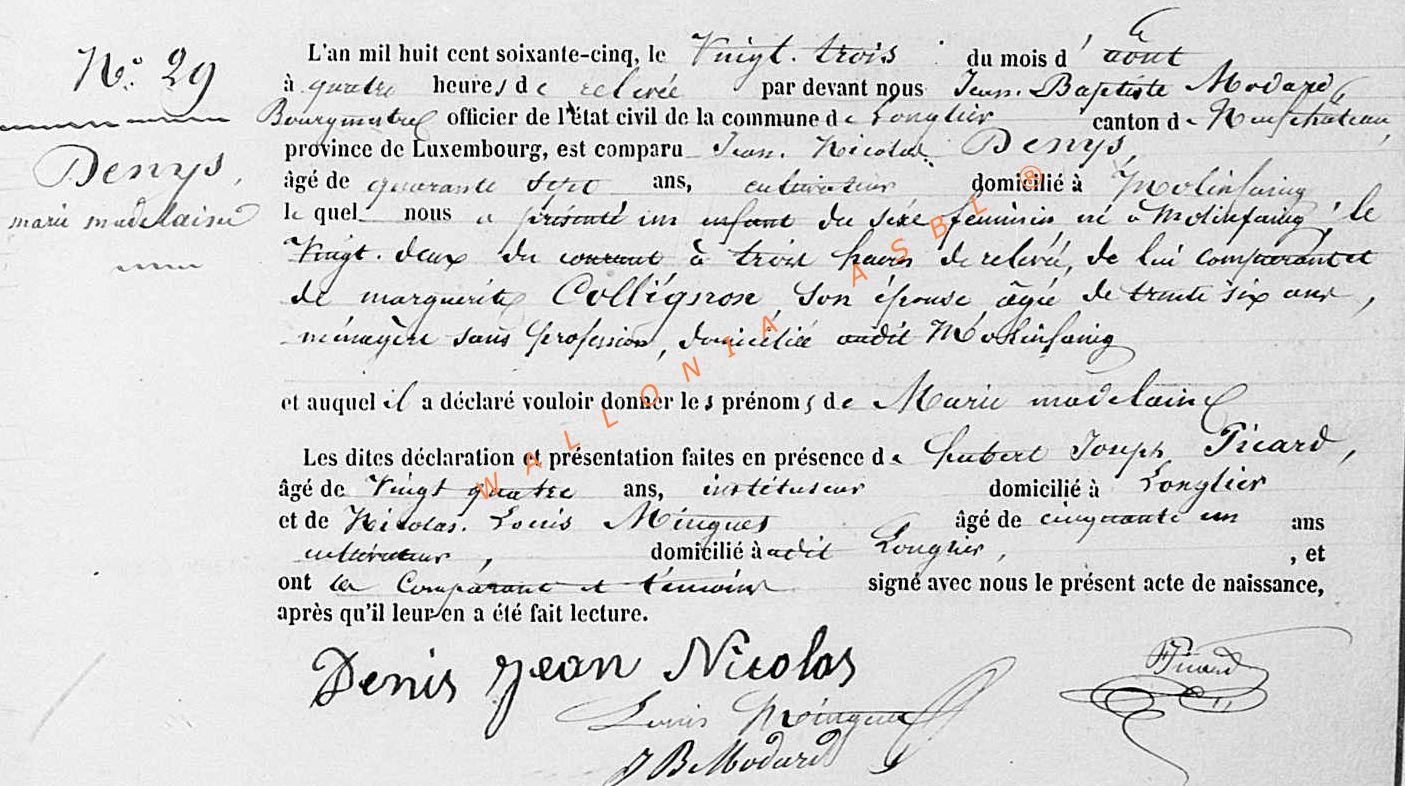 N° 29
Denys,
marie madelaine
L'an mil huit cent soixante-cinq, le Vingt. trois du mois d' août
à quatre heures de relevée par devant nous Jean. Baptiste Modard,
Bourgmestre officier de l'état civil de la commune de Longlier canton de Neufchâteau,
province de Luxembourg, est comparu Jean. Nicolas. Denys,
âgé de quarante sept ans, cultivateur domicilié à Molinfaing
lequel nous a présenté un enfant du sexe féminin, né à Molinfaing, le
Vingt. deux du courant à trois heures de relevée, de lui comparant et
de marguerite Collignon son épouse âgée de trente six ans,
ménagère sans profession, domiciliée audit Molinfaing
et auquel il a déclaré vouloir donner les prénoms de Marie madelaine
Les dites déclaration et présentation faites en présence de hubert Joseph Picard,
âgé de Vingt quatre ans, instituteur domicilié à Longlier
et de Nicolas. Louis Mingues âgé de cinquante un ans
cultivateur, domicilié à Longlier, , et
ont les Comparant et témoins signé avec nous le présent acte de naissance,
après qu'il leur en a été fait lecture.
Denis Jean Nicolas
Picard
Louis
J B Modard
WALLONIA ASBL ®